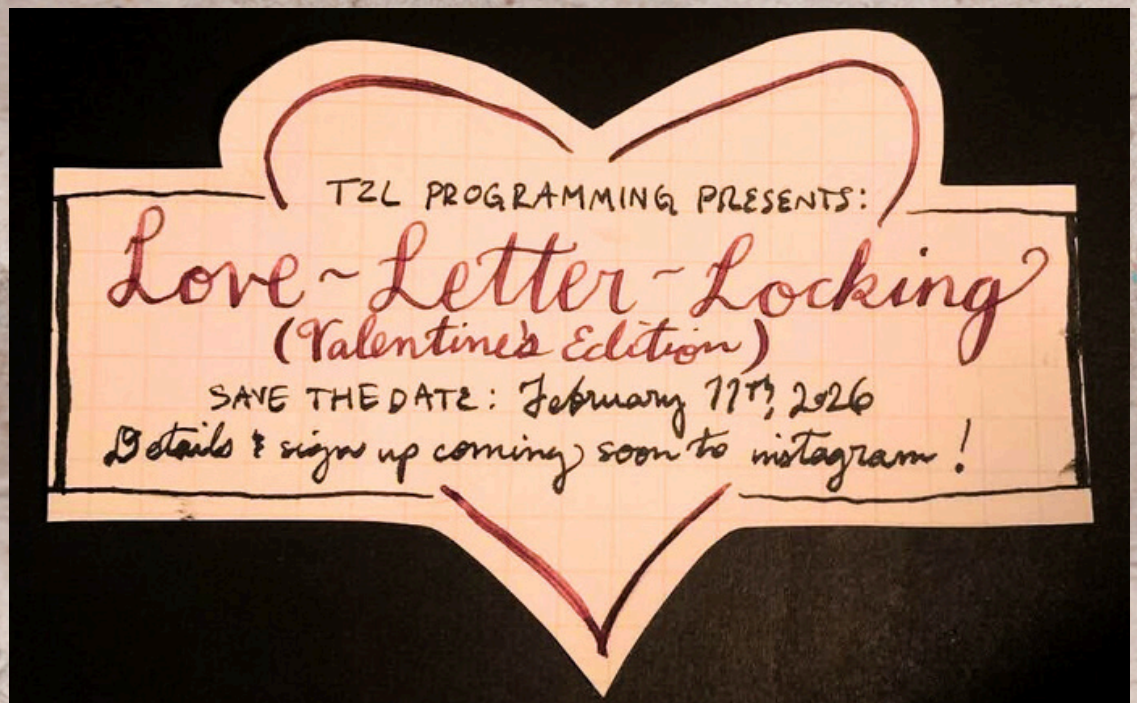 TZL PROGRAMMING PRESENTS:
Love~Letter~Locking
(Valentine's Edition)
SAVE THE DATE: February 11th, 2026
Details & sign up coming soon to instagram!